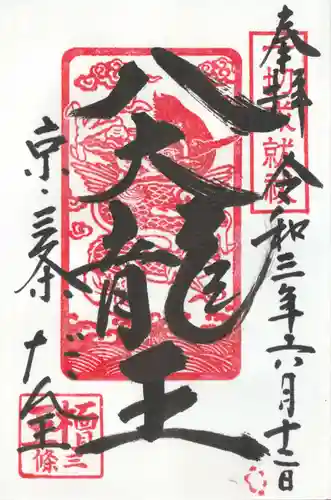 奉拝 令和三年六月十二日
八大龍王
京・三条 だん王
檀王
三條